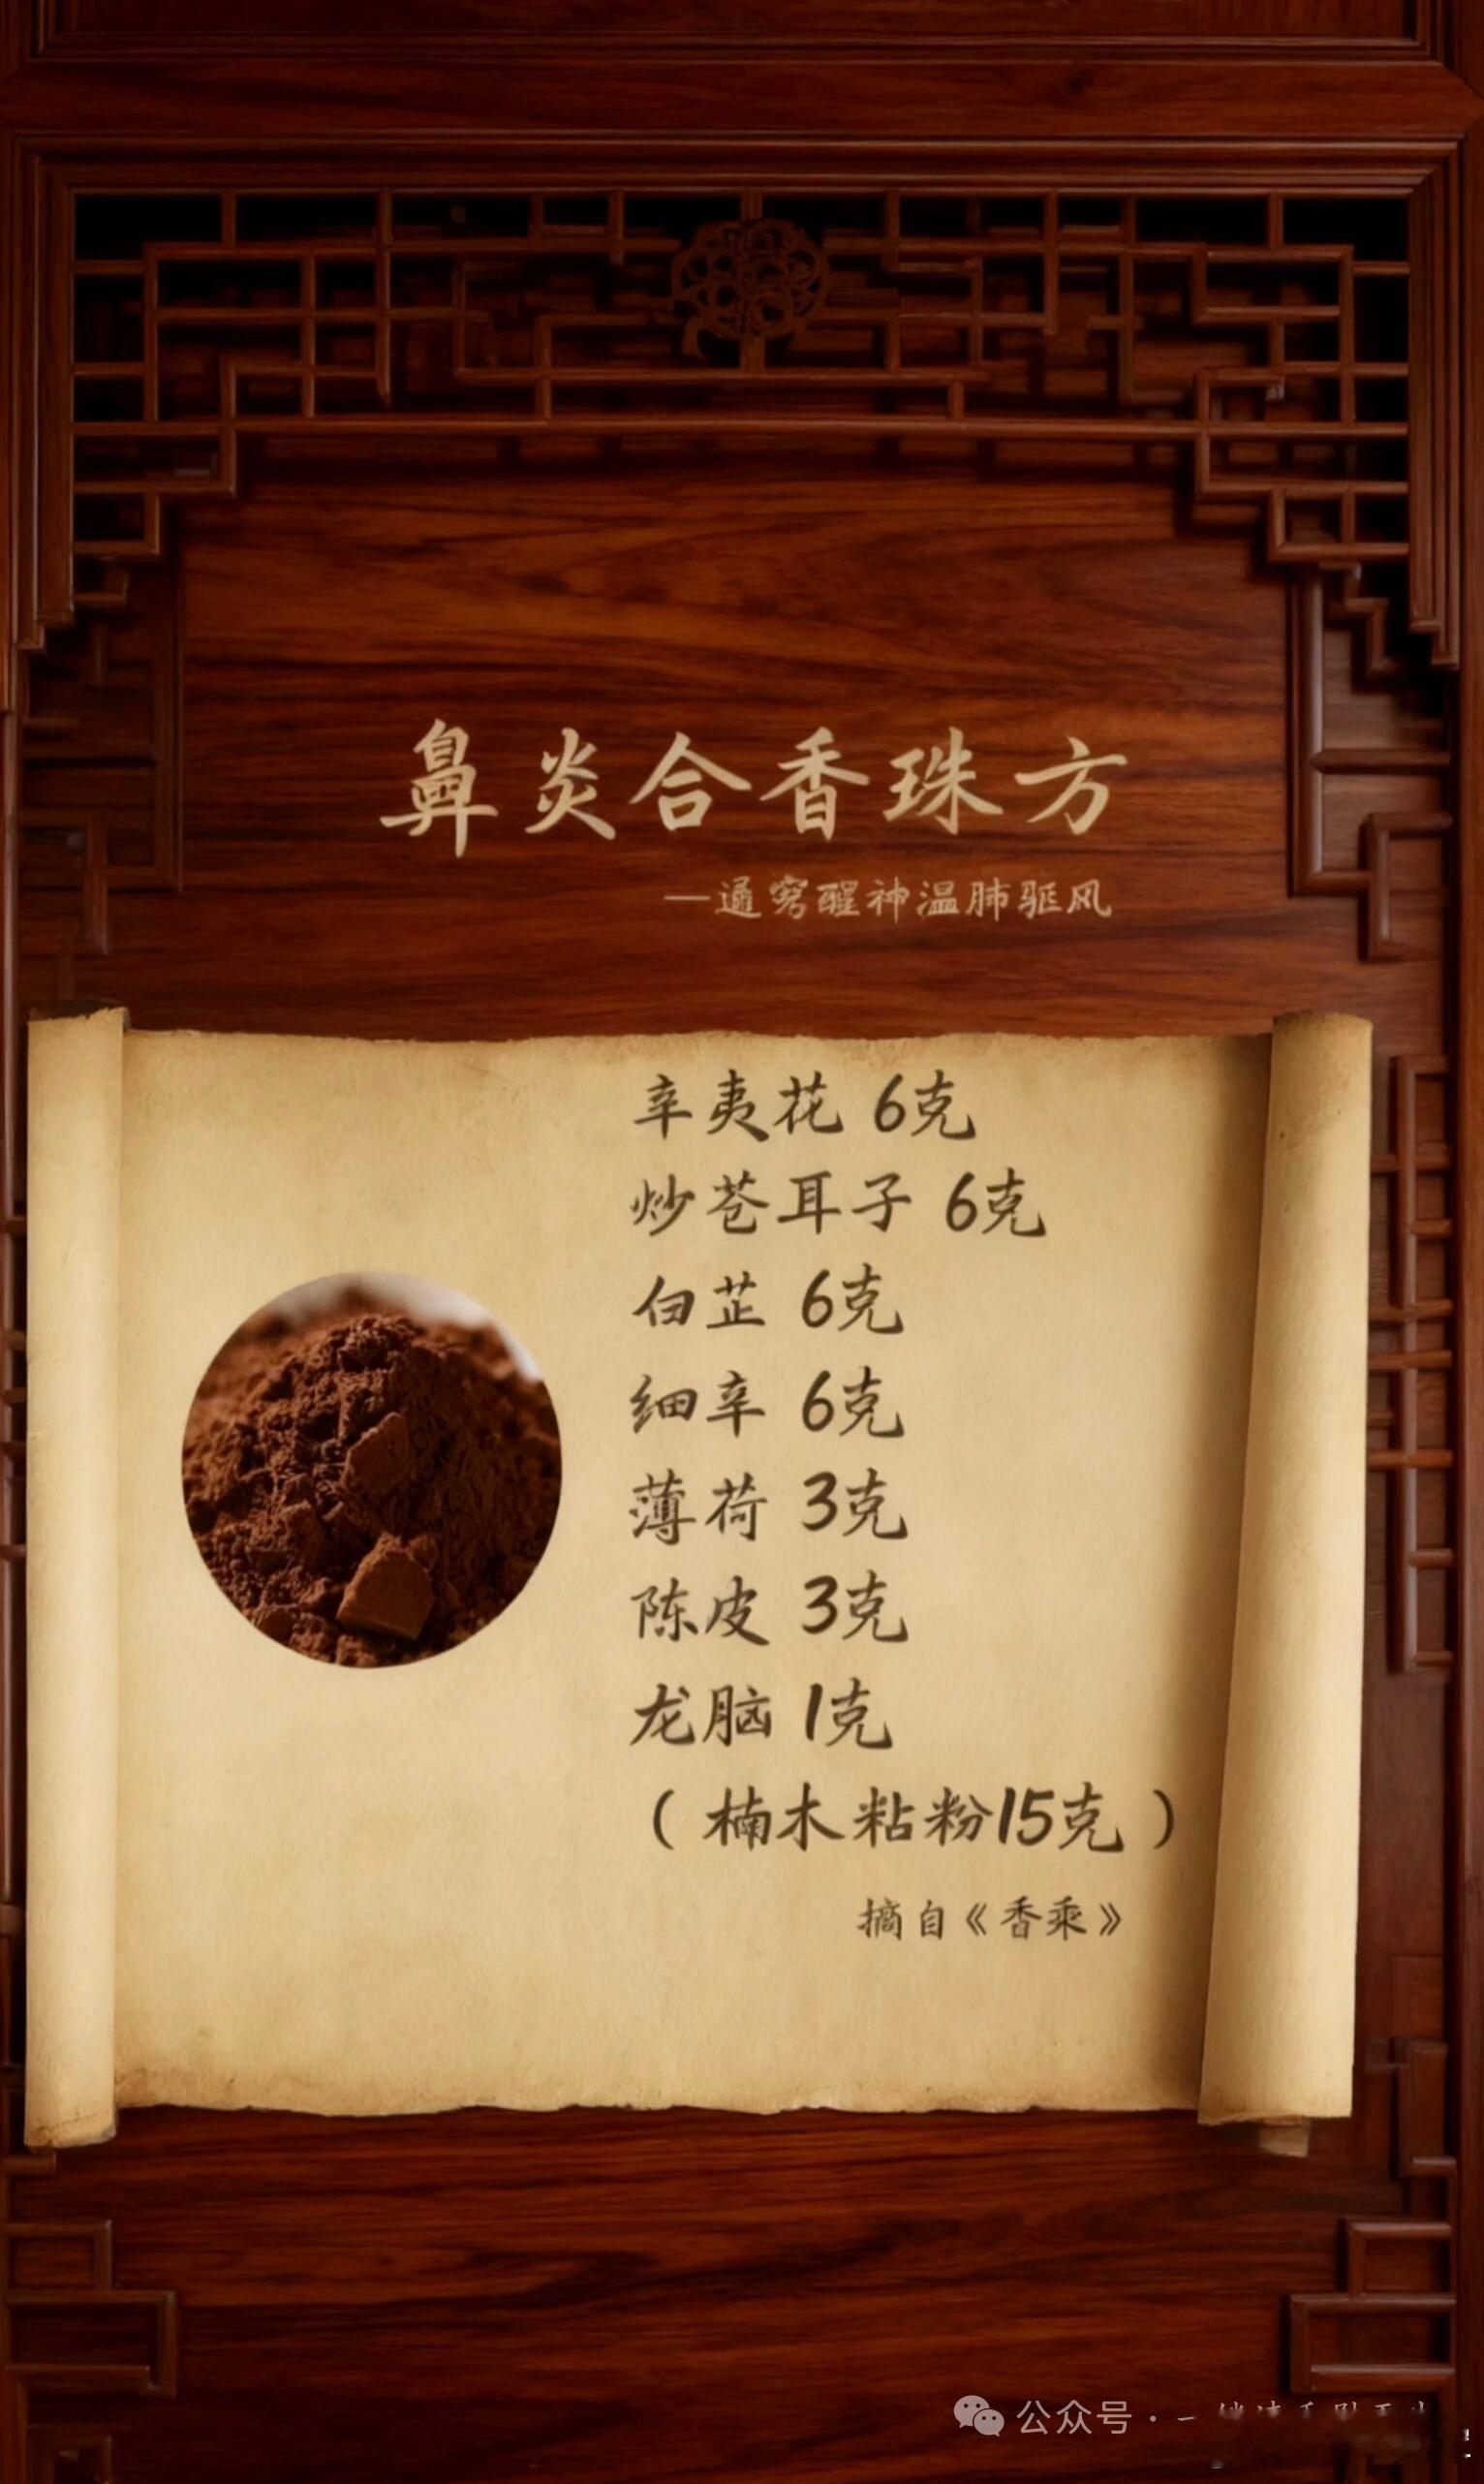 鼻炎合香珠方
—通窍醒神温肺驱风
辛夷花 6克
炒苍耳子 6克
白芷 6克
细辛 6克
薄荷 3克
陈皮 3克
龙脑 1克
（楠木粘粉15克）
摘自《香乘》
公众号·一